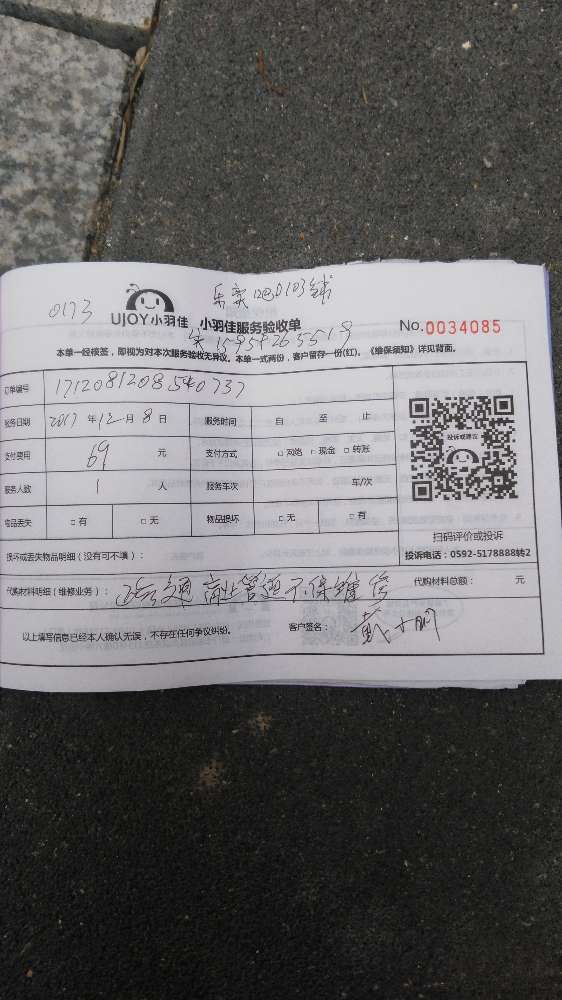 0173
UJOY小羽佳 小羽佳服务验收单 No.0034085
本单一经核签，即视为对本次服务验收无异议。本单一式两份，客户留存一份(红)。《维保须知》详见背面。
订单编号 1712081208540737
服务日期 2017 年 12 月 8 日 服务时间 自 至 止
支付费用 69 元 支付方式 □网络 □现金 □转账
服务人数 1 人 服务车次 车/次
物品丢失 □有 □无 物品损坏 □无 □有
投诉或建议
扫码评价或投诉
投诉电话：0592-5178888转2
损坏或丢失物品明细（没有可不填）：
代购材料明细（维修业务）： 疏通 商业管道不保维修 代购材料总额： 元
以上填写信息已经本人确认无误，不存在任何争议纠纷。 客户签名：